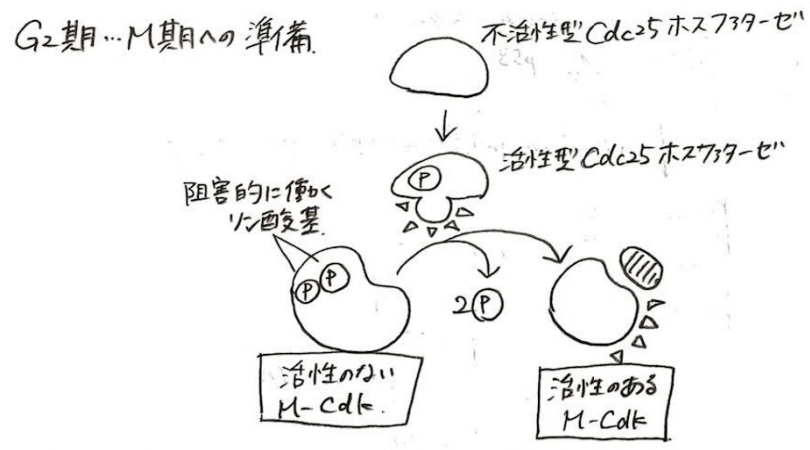 G2期…M期への準備.
不活性型Cdc25ホスファターゼ
活性型Cdc25ホスファターゼ
P
阻害的に働く
リン酸基.
P P
2P
活性のない
M-Cdk.
活性のある
M-Cdk